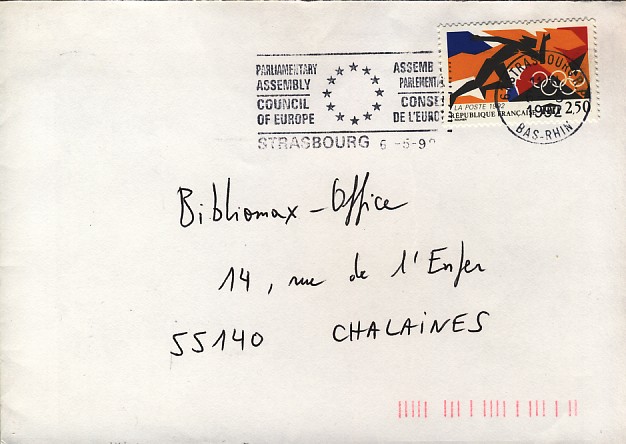 PARLIAMENTARY
ASSEMBLY
COUNCIL
OF EUROPE
ASSEMB
PARLEMENTA
CONSE
DE L'EURO
STRASBOURG 6-5-92
LA POSTE 1992
RÉPUBLIQUE FRANÇAISE 2,50
STRASBOURG
1992
BAS-RHIN
Bibliomax-Office
14, rue de l'Enfer
55140 CHALAINES